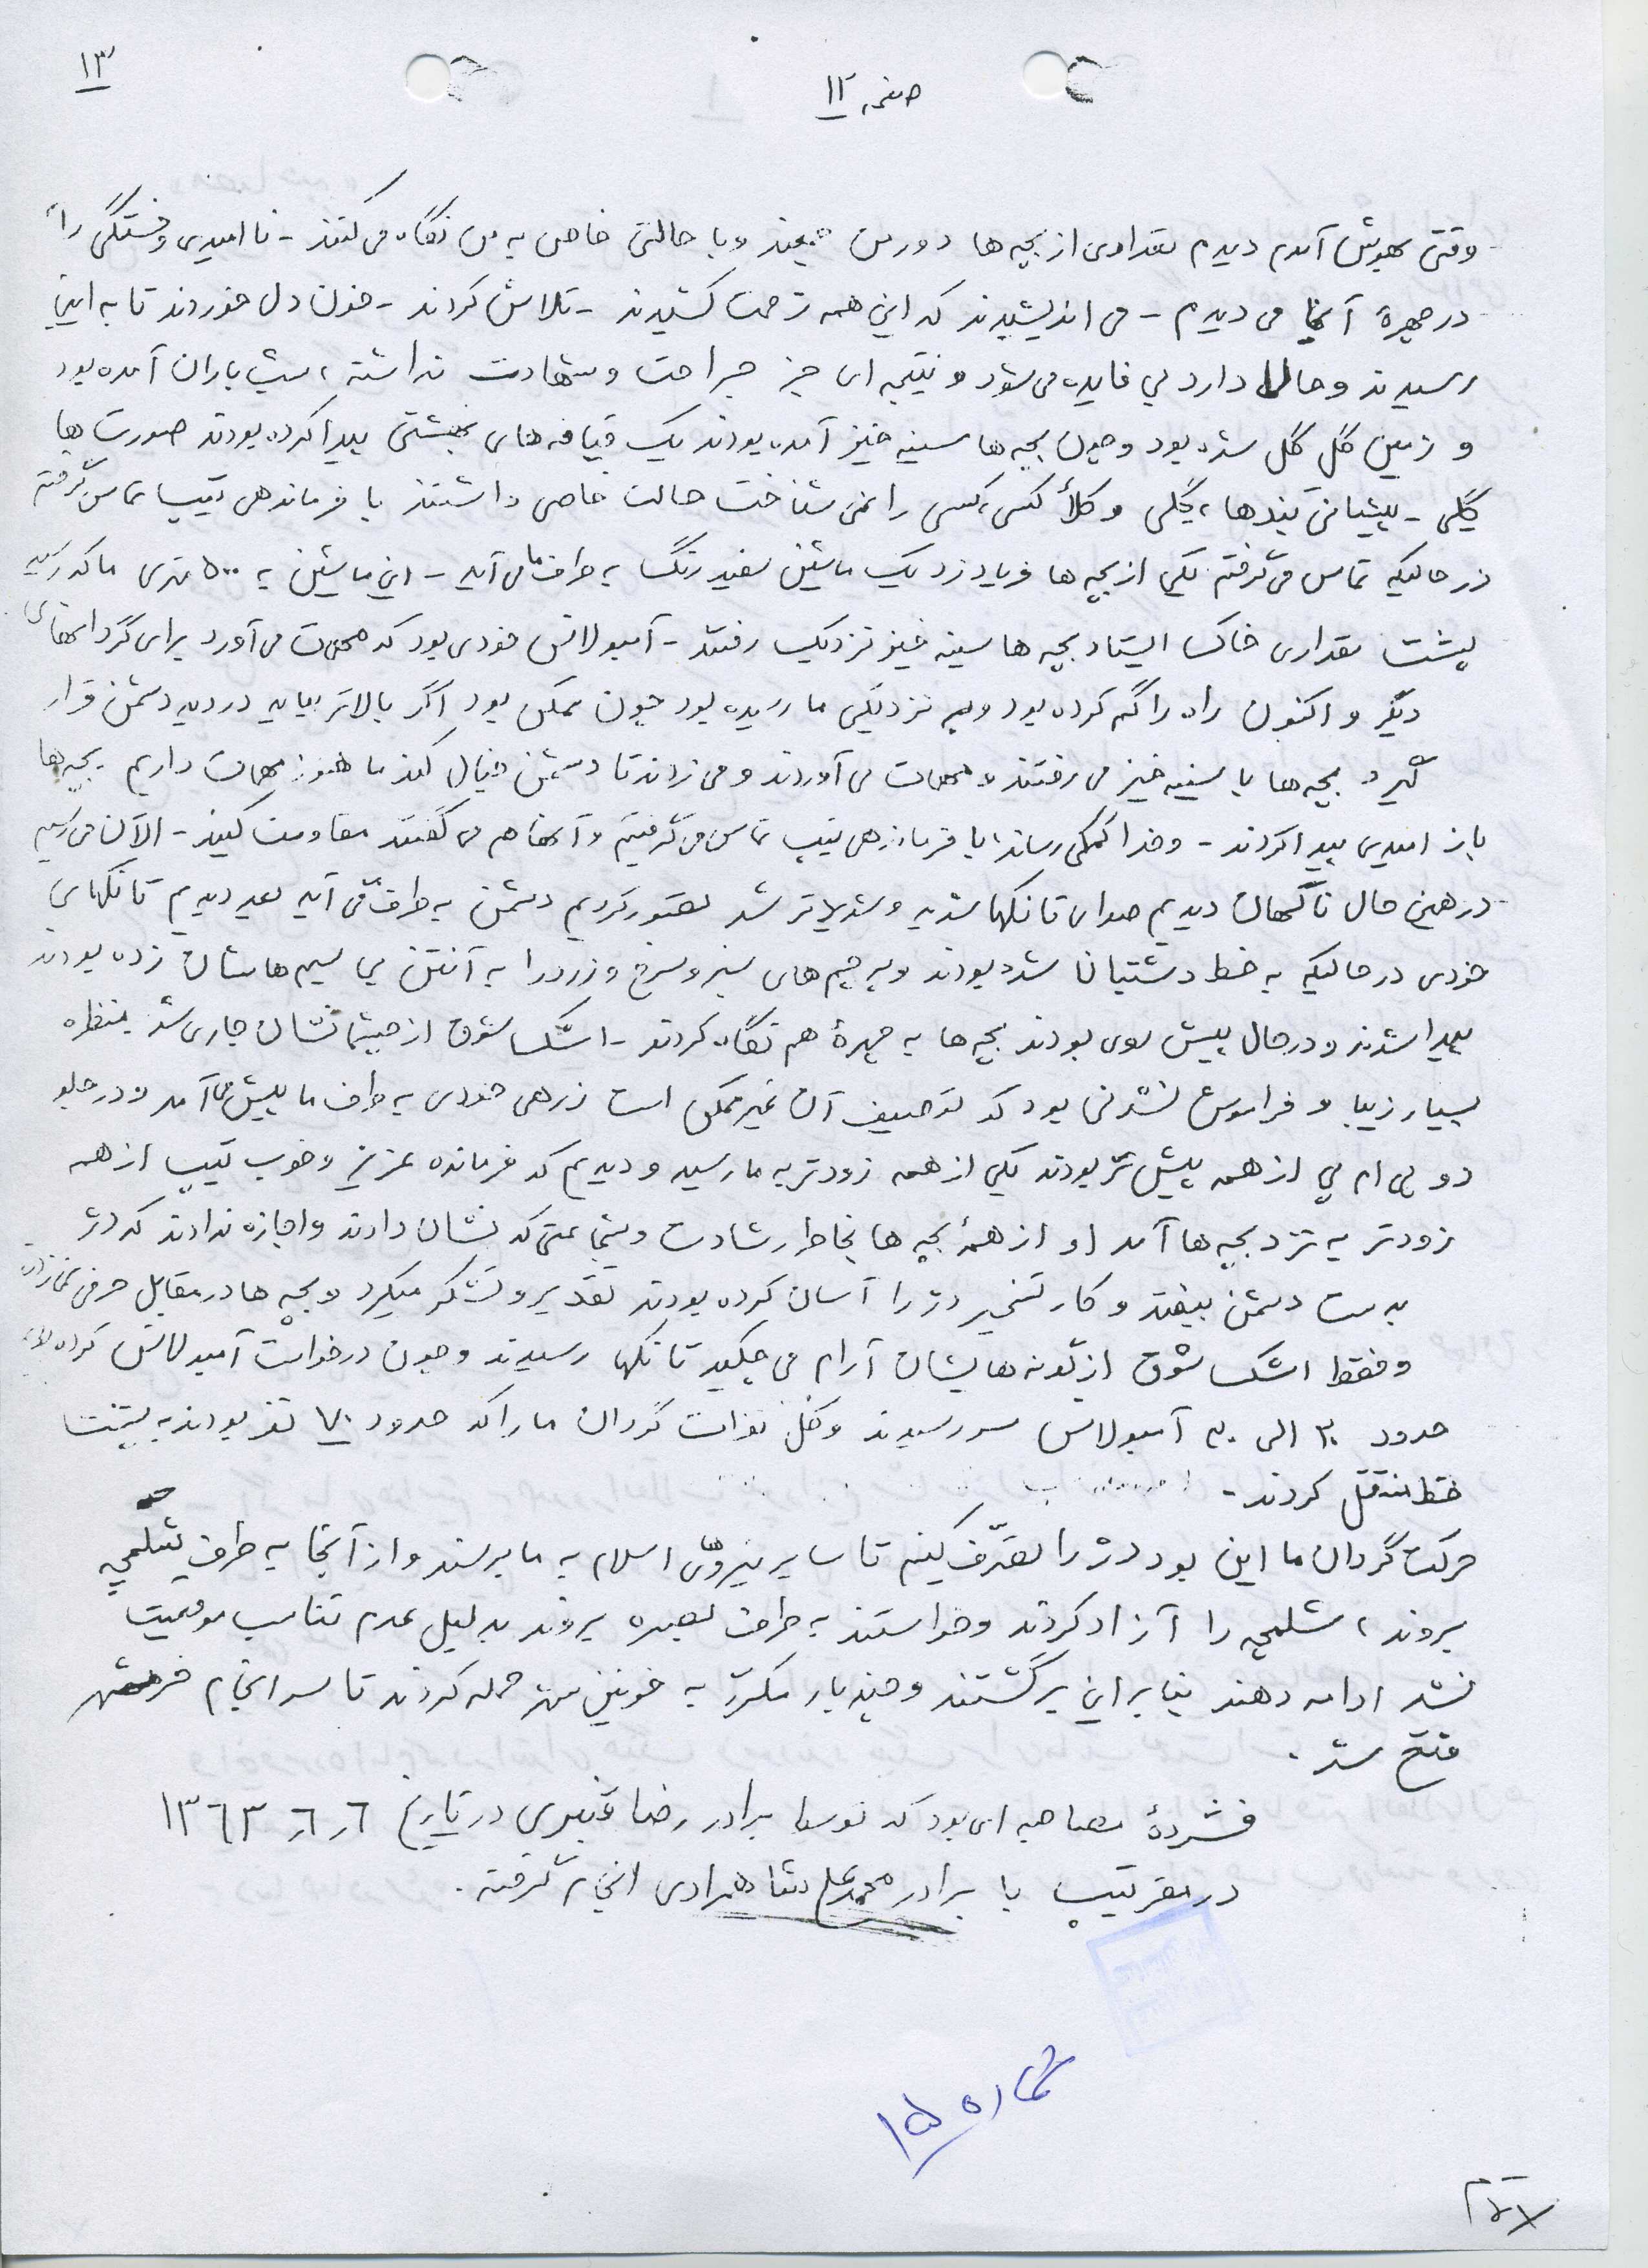 ۱۳
صفحه ۱۲
وقتی بهوش آمدم دیدم تعدادی از بچه ها دور من جمعند و با حالتی خاص به من نگاه می کنند - نا امیدی و خستگی را
در چهرهٔ آنها می دیدم - می اندیشیدند که این همه زحمت کشیدند - تلاش کردند - خون دل خوردند تا به اینجا
رسیدند و حالا دارد بی فایده می شود و نتیجه ای جز جراحت و شهادت نداشته ، شب باران آمده بود
و زمین گل گل شده بود و چون بچه ها سینه خیز آمده بودند یک قیافه های بهشتی پیدا کرده بودند صورت ها
گِلی - پیشانی بندها ، گِلی و کلاً کسی ، کسی را نمی شناخت حالت خاصی داشتند با فرماندهی تیپ تماس گرفته
در حالیکه تماس می گرفتم یکی از بچه ها فریاد زد یک ماشین سفید رنگ به طرف ما می آید - این ماشین به ۵۰۰ متری ما که رسید
پشت مقداری خاک ایستاد بچه ها سینه خیز نزدیک رفتند - آمبولانس خودی بود که مهمات می آورد برای گردانهای
دیگر و اکنون راه را گم کرده بود و به نزدیکی ما رسیده بود چون ممکن بود اگر بالاتر بیاید در دید دشمن قرار
گیرد بچه ها با سینه خیز می رفتند و مهمات می آوردند و می زدند تا دشمن خیال کند ما هنوز مهمات داریم . بچه ها
باز امیدی پیدا کردند - و خدا کمکی رساند ، با فرماندهی تیپ تماس می گرفتیم و آنها هم می گفتند مقاومت کنید - الآن می رسیم
در همین حال ناگهان دیدیم صدای تانکها شدید و شدیدتر شد تصور کردیم دشمن به طرف ما می آید بعد دیدیم تانکهای
خودی در حالیکه به خط دشتبان شده بودند و پرچم های سبز و سرخ و زرد را به آنتن بی سیم هاشان زده بودند
پیدا شدند و در حال پیش روی بودند بچه ها به چهرهٔ هم نگاه کردند - اشک شوق از چشمانشان جاری شد منظره
بسیار زیبا و فراموش نشدنی بود که توصیف آن غیر ممکن است زرهی خودی به طرف ما پیش می آمد و در جلو
دو پی ام پی از همه پیش تر بودند یکی از همه زودتر به ما رسید و دیدیم که فرمانده عزیز و خوب تیپ از همه
زودتر به نزد بچه ها آمد او از همهٔ بچه ها بخاطر رشادت و شجاعتی که نشان دادند و اجازه ندادند که دژ
بدست دشمن بیفتد و کار تسخیر دژ را آسان کرده بودند تقدیر و تشکر میکرد و بچه ها در مقابل حرفی نمی زدند
و فقط اشک شوق از گونه هایشان آرام می چکید تانکها رسیدند و چون درخواست آمبولانس کرده بودیم
حدود ۳۰ الی ۴۰ آمبولانس سر رسیدند و کل نفرات گردان ما را که حدود ۷۰ نفر بودند به پشت
خط منتقل کردند -
حرکت گردان ما این بود دژ را تصرّف کنیم تا سایر نیروهای اسلام به ما برسند و از آنجا به طرف شلمچه
بروند ، شلمچه را آزاد کردند و خواستند به طرف بصره بروند بدلیل عدم تناسب موقعیت
نشد ادامه دهند بنابراین برگشتند و چند بار مکرّر به خونین شهر حمله کردند تا سرانجام خرمشهر
فتح شد .
فشردهٔ مصاحبه ای بود که توسط برادر رضا قنبری در تاریخ ۶ ر ۶ ر ۱۳۶۳
در مقر تیپ با برادر محمد علی شاهمرادی انجام گرفته .
شماره ۱۵